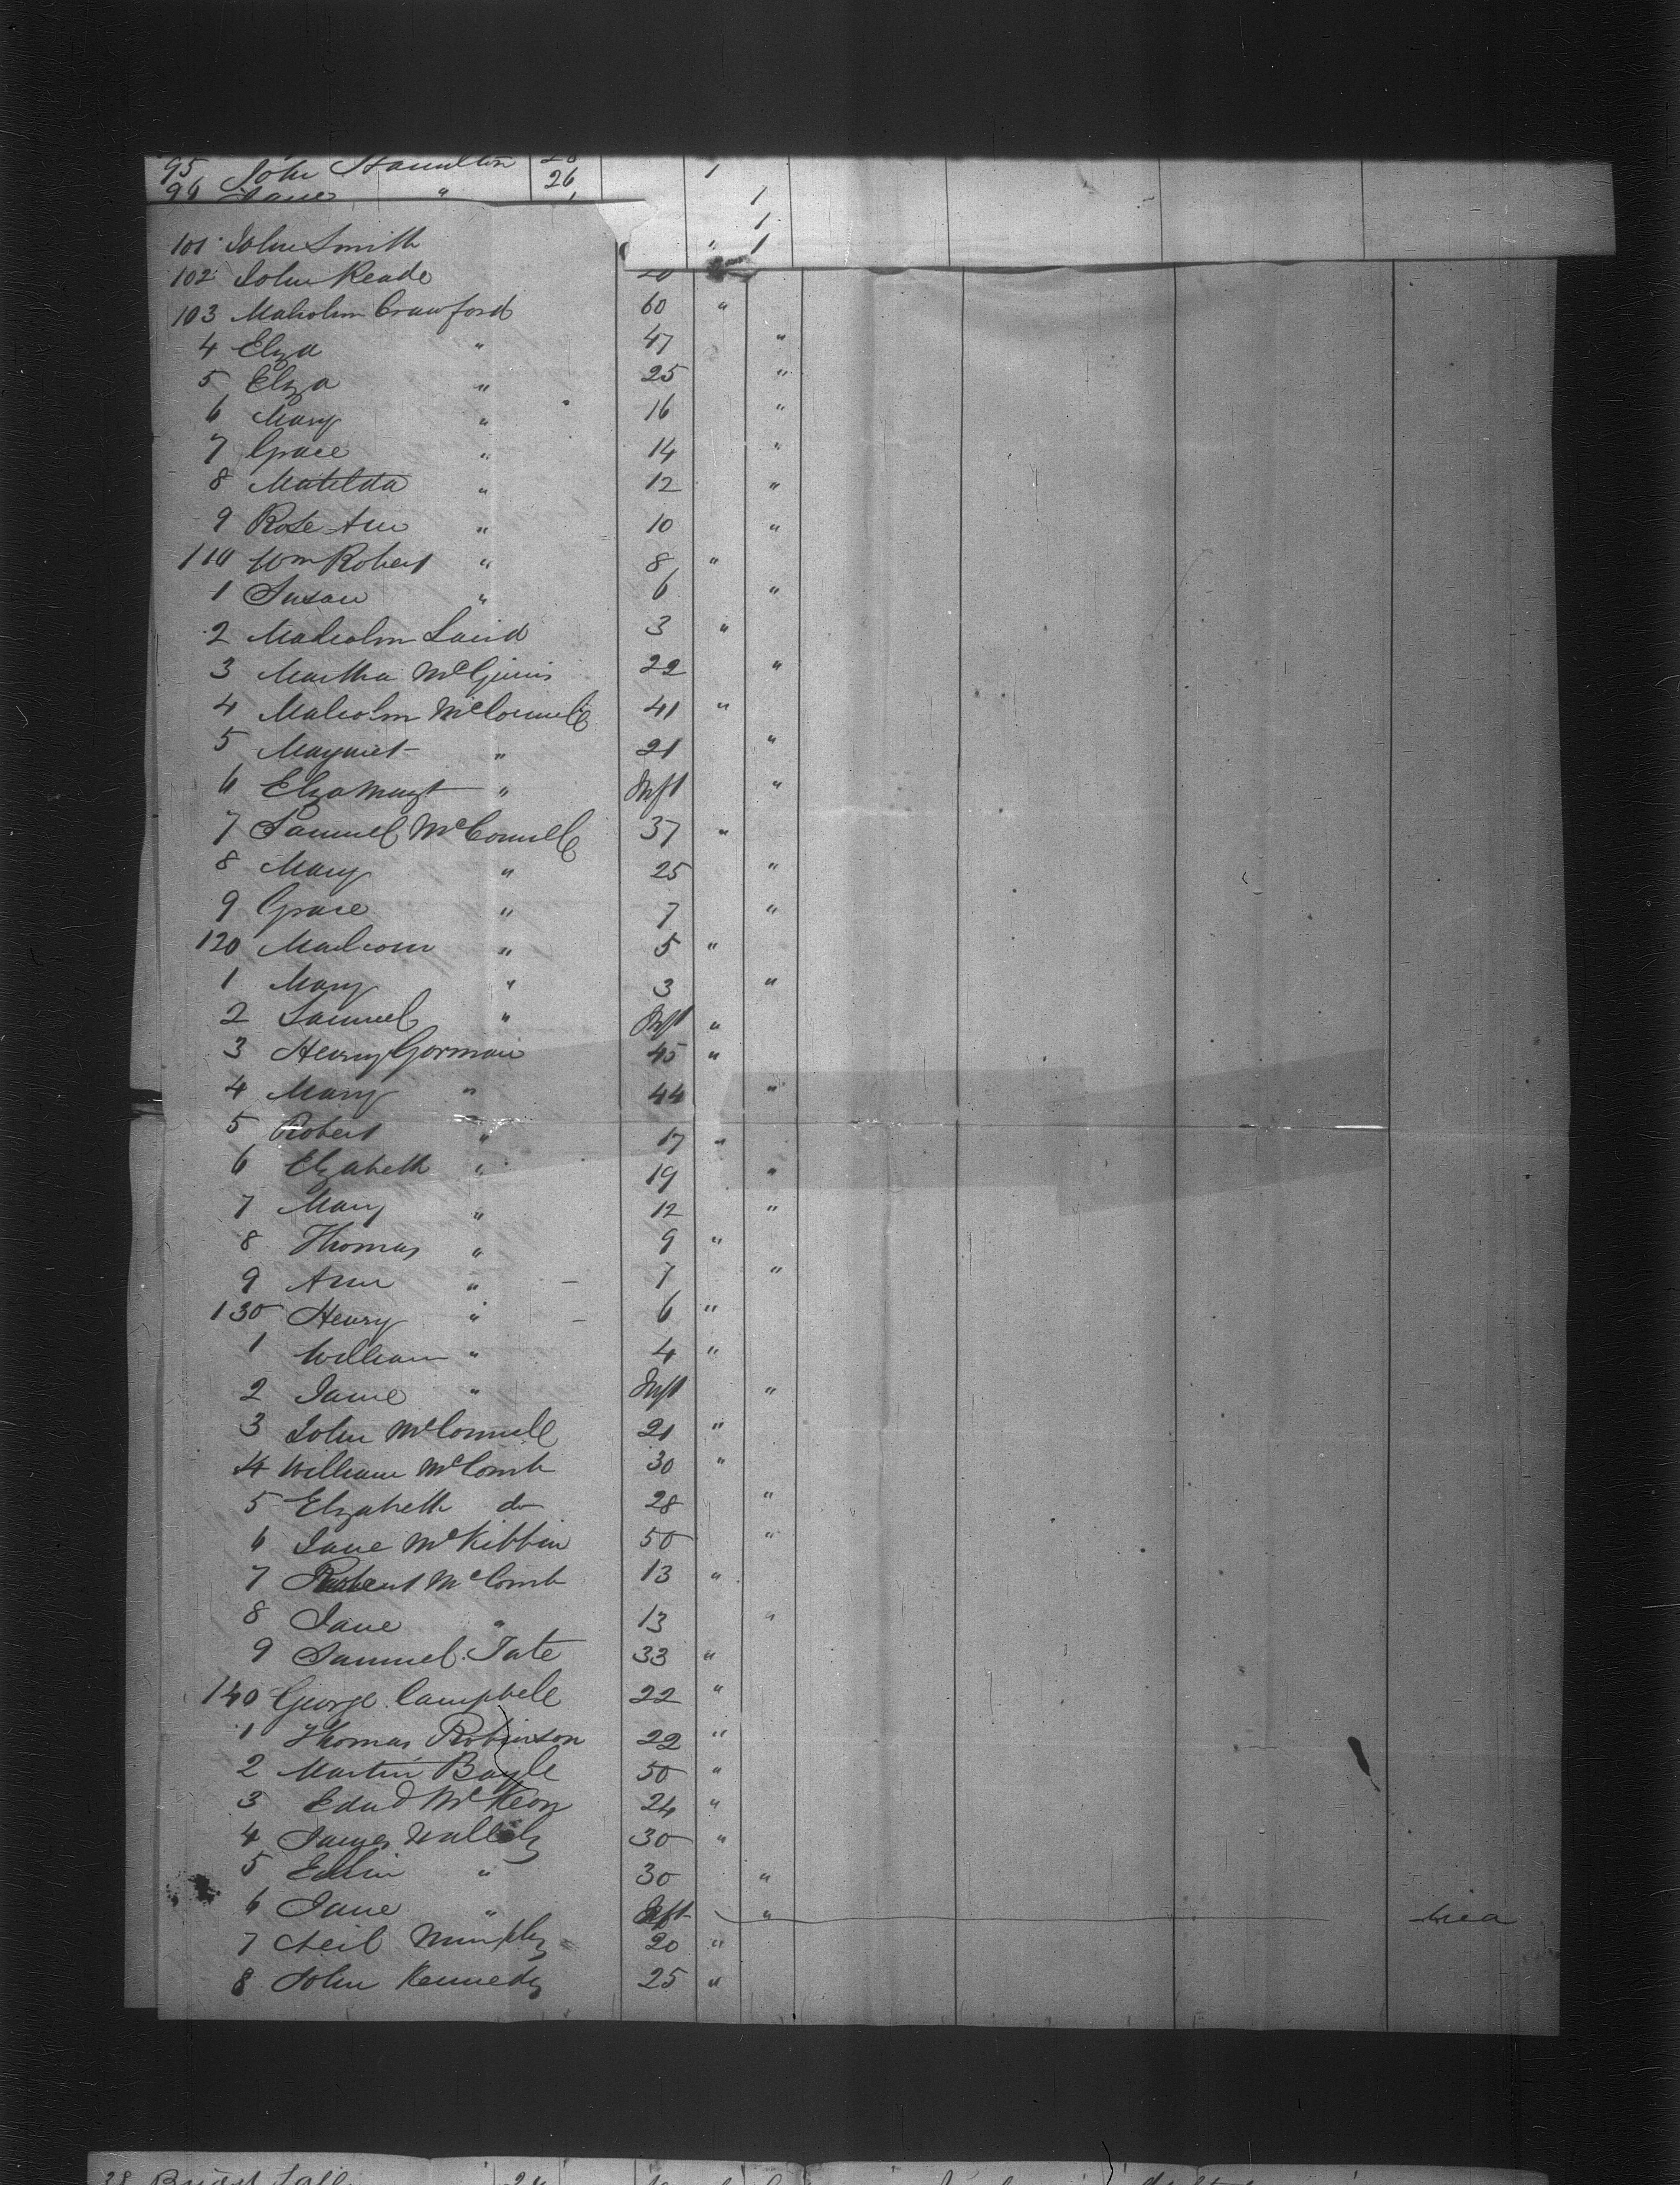 95 John Hamilton 1
96 Jane " 26 1
1
101 John Smith " 1
102 John Reade 20
103 Malcolm Crawford 60 "
4 Eliza " 47 "
5 Eliza " 25 "
6 Mary " 16 "
7 Grace " 14 "
8 Matilda " 12 "
9 Rose Ann " 10 "
110 Wm Robert " 8 "
1 Susan " 6 "
2 Malcolm Laird 3 "
3 Martha McGinnis 22 "
4 Malcolm McConnell 41 "
5 Margaret " 21 "
6 Eliza Margt " Inft "
7 Samuel McConnell 37 "
8 Mary " 25 "
9 Grace " 7 "
120 Malcom " 5 "
1 Mary " 3 "
2 Samuel " Inft "
3 Henry Gorman 45 "
4 Mary " 44 "
5 Robert " 17 "
6 Elizabeth " 19 "
7 Mary " 12 "
8 Thomas " 9 "
9 Ann " 7 "
130 Henry " 6 "
1 William " 4 "
2 Jane " Inft "
3 John McConnell 21 "
4 William McComb 30 "
5 Elizabeth do 28 "
6 Jane McKibbin 50 "
7 Robert McComb 13 "
8 Jane " 13 "
9 Samuel Tate 33 "
140 George Campbell 22 "
1 Thomas Robinson 22 "
2 Martin Boyle 50 "
3 Edwd McKeon 24 "
4 James 30 "
5 " 30 "
6 Jane " Inft "
7 Neil Murphy 20 "
8 John Kennedy 25 "